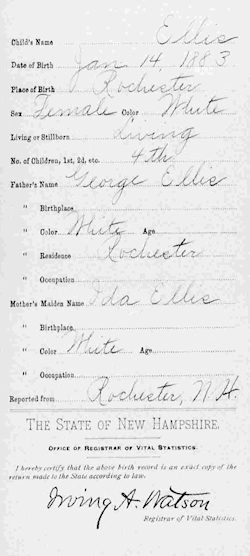 Child's Name Ellis
Date of Birth Jan 14, 1883
Place of Birth Rochester
Sex Female Color White
Living or Stillborn living
No. of Children, 1st, 2d, etc. 4th
Father's Name George Ellis
" Birthplace
" Color White Age
" Residence Rochester
" Occupation
Mother's Maiden Name Ida Ellis
" Birthplace
" Color White Age
" Occupation
Reported from Rochester, N.H.
THE STATE OF NEW HAMPSHIRE.
OFFICE OF REGISTRAR OF VITAL STATISTICS.
I hereby certify that the above birth record is an exact copy of the
return made to the State according to law.
Irving A. Watson
Registrar of Vital Statistics.